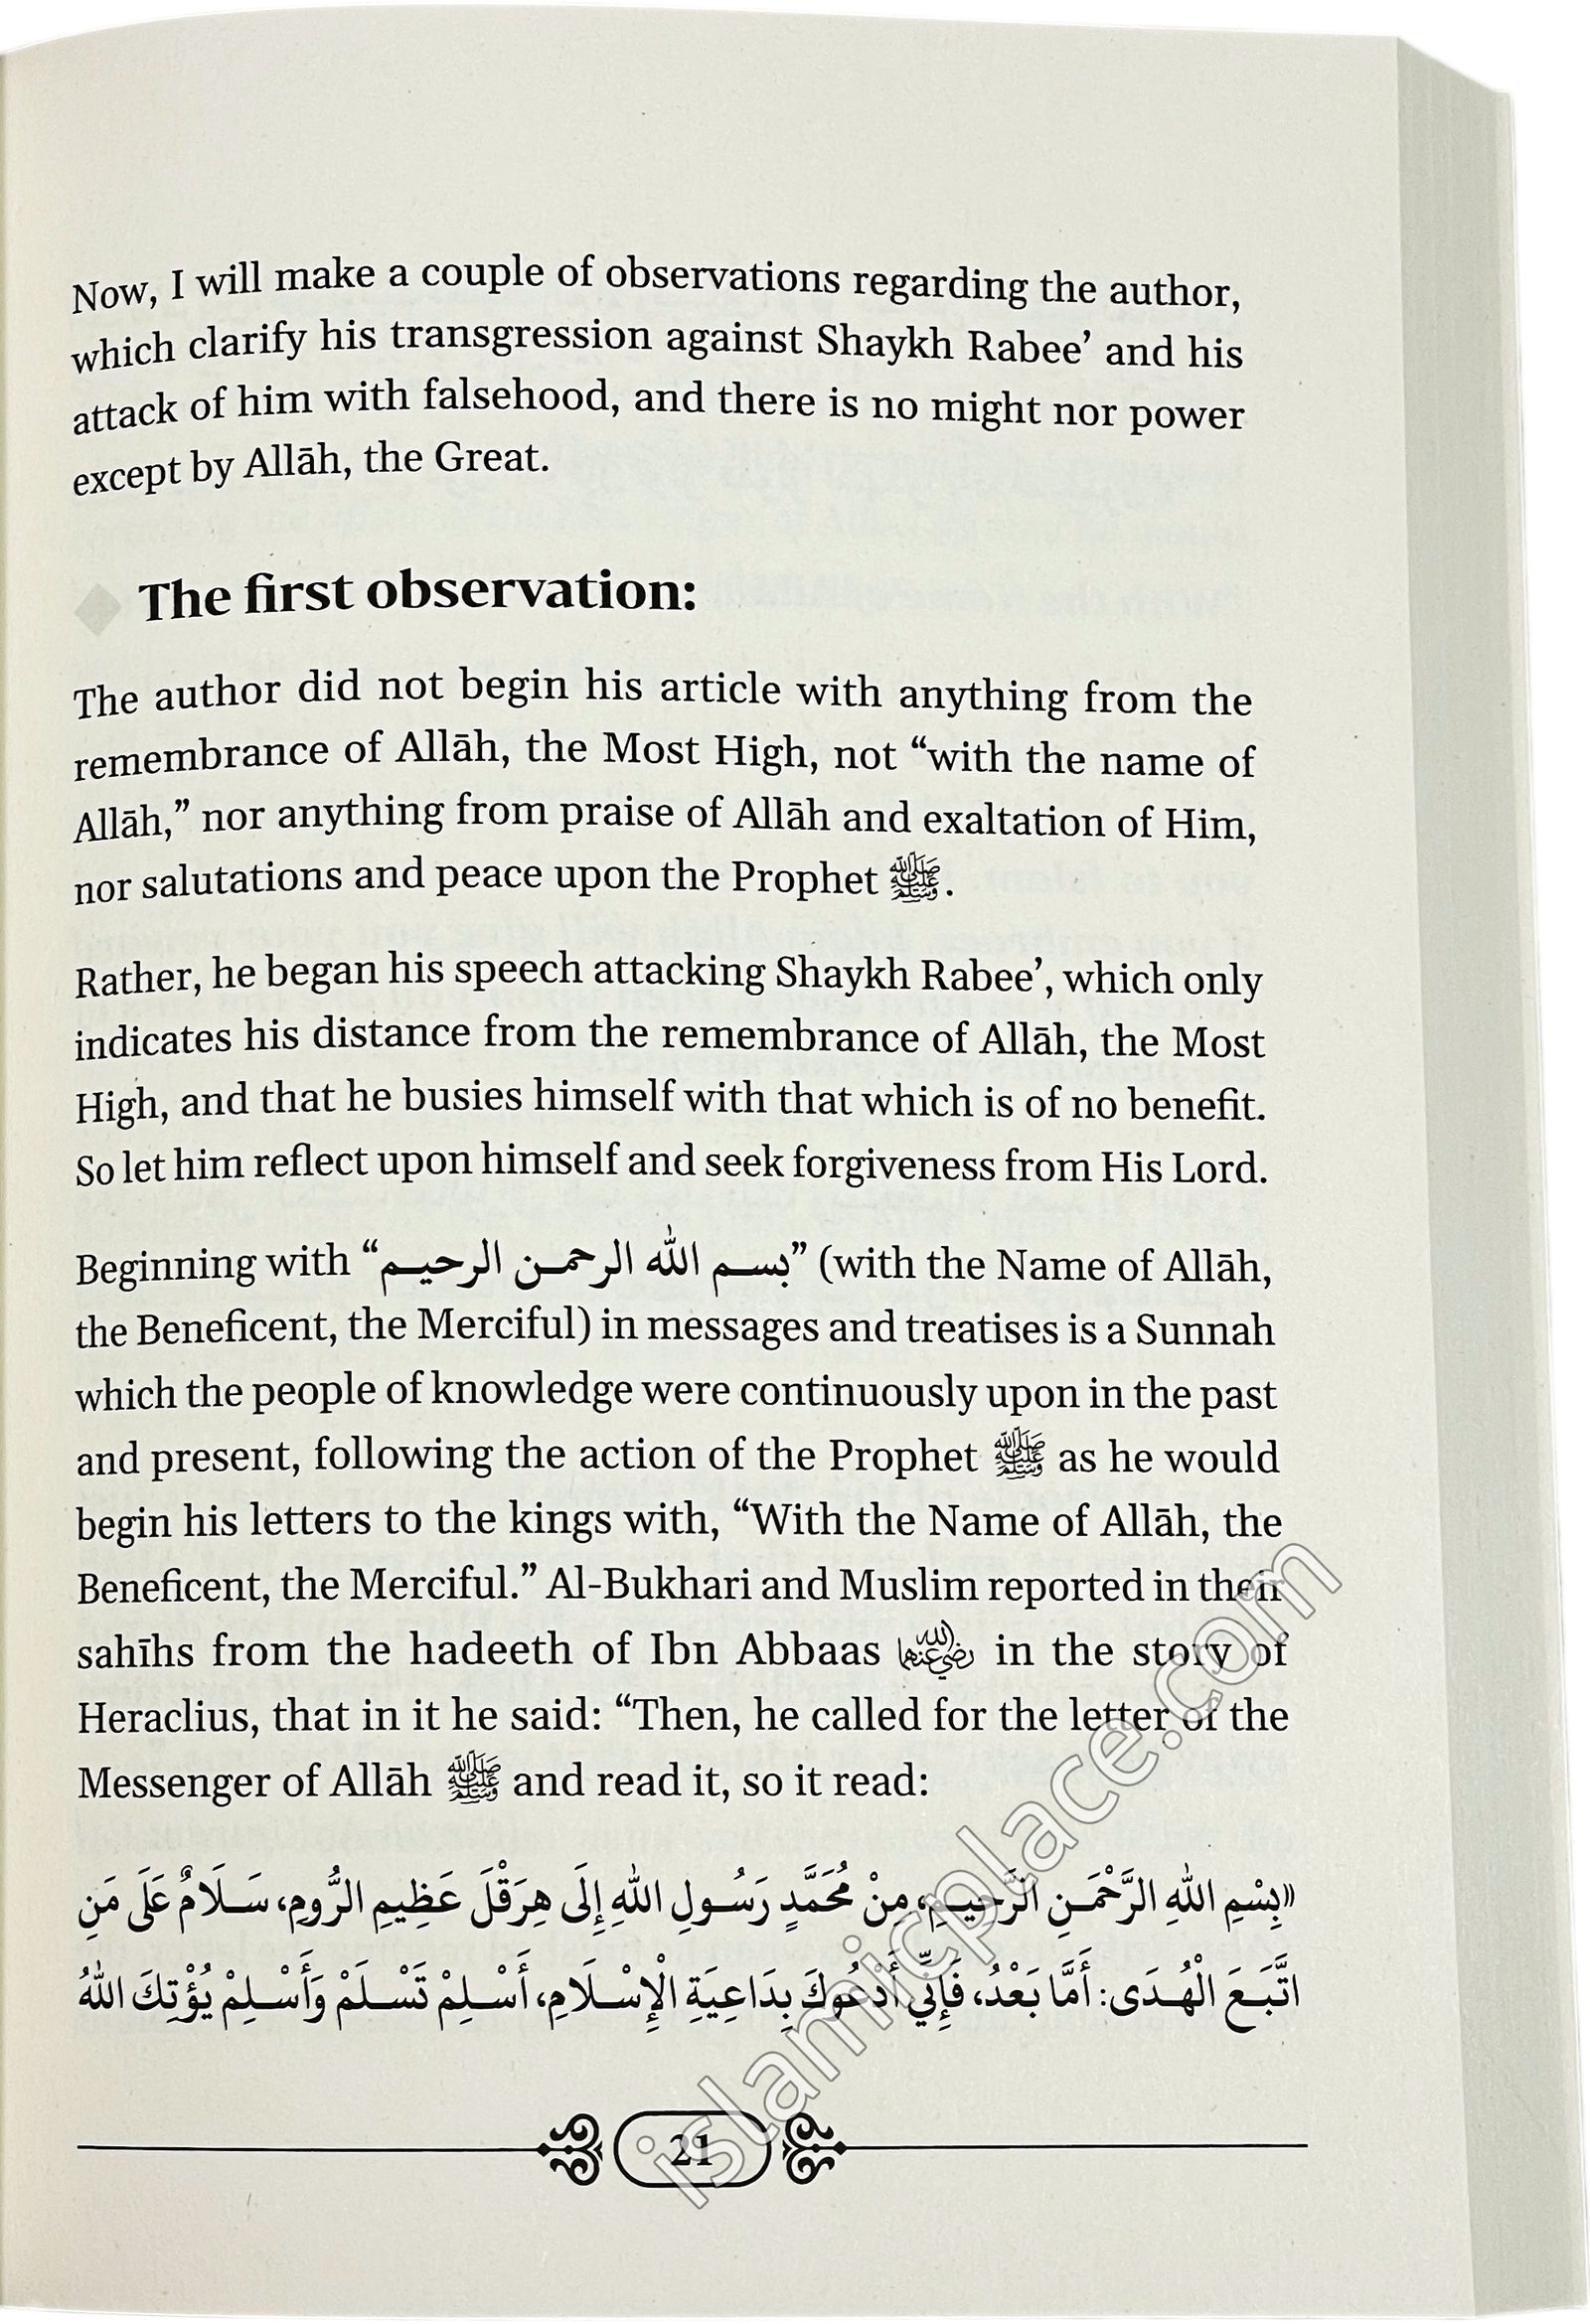 Now, I will make a couple of observations regarding the author,
which clarify his transgression against Shaykh Rabee’ and his
attack of him with falsehood, and there is no might nor power
except by Allāh, the Great.
The first observation:
The author did not begin his article with anything from the
remembrance of Allāh, the Most High, not “with the name of
Allāh,” nor anything from praise of Allāh and exaltation of Him,
nor salutations and peace upon the Prophet ﷺ.
Rather, he began his speech attacking Shaykh Rabee’, which only
indicates his distance from the remembrance of Allāh, the Most
High, and that he busies himself with that which is of no benefit.
So let him reflect upon himself and seek forgiveness from His Lord.
Beginning with “بسم الله الرحمن الرحيم” (with the Name of Allāh,
the Beneficent, the Merciful) in messages and treatises is a Sunnah
which the people of knowledge were continuously upon in the past
and present, following the action of the Prophet ﷺ as he would
begin his letters to the kings with, “With the Name of Allāh, the
Beneficent, the Merciful.” Al-Bukhari and Muslim reported in their
sahīhs from the hadeeth of Ibn Abbaas رضي الله عنهما in the story of
Heraclius, that in it he said: “Then, he called for the letter of the
Messenger of Allāh ﷺ and read it, so it read:
«بِسْمِ اللهِ الرَّحْمَنِ الرَّحِيمِ، مِنْ مُحَمَّدٍ رَسُولِ اللهِ إِلَى هِرَقْلَ عَظِيمِ الرُّومِ، سَلَامٌ عَلَى مَنِ
اتَّبَعَ الْهُدَى: أَمَّا بَعْدُ، فَإِنِّي أَدْعُوكَ بِدَاعِيَةِ الْإِسْلَامِ، أَسْلِمْ تَسْلَمْ وَأَسْلِمْ يُؤْتِكَ اللهُ
21
islamicplace.com